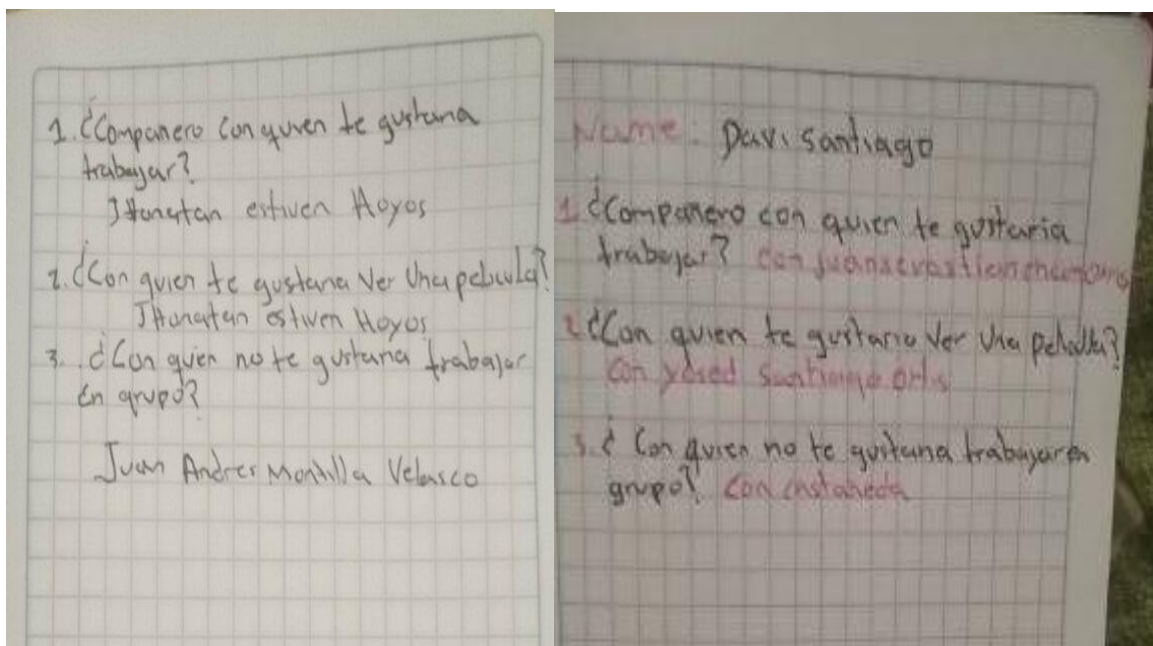 1. ¿Companero con quien te gustaria
trabajar?
JHonatan estiven Hoyos
2. ¿Con quien te gustaria Ver Una pelicula?
JHonatan estiven Hoyos
3. ¿Con quien no te gustaria trabajar
En grupo?
Juan Andres Montilla Velasco
Name: Davi santiago
1. ¿Companero con quien te gustaria
trabajar? Con juan
2. ¿Con quien te gustaria Ver Una pelicula?
Con yesed santiago ortis
3. ¿Con quien no te gustaria trabajar en
grupo? Con castañeda